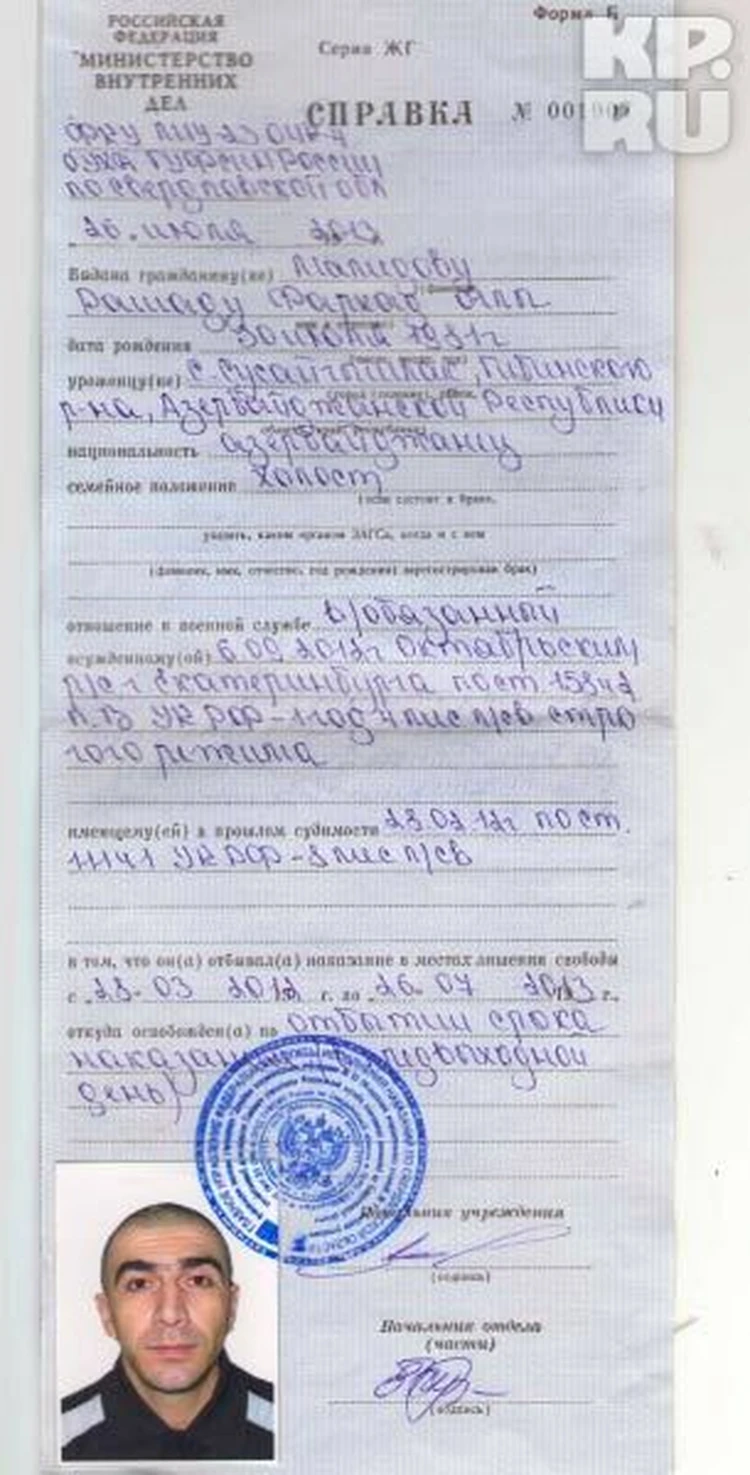 РОССИЙСКАЯ
ФЕДЕРАЦИЯ
МИНИСТЕРСТВО
ВНУТРЕННИХ
ДЕЛ
Форма Б
Серия ЖГ
KP.
RU
СПРАВКА №
ГУФСИН России
по Свердловской обл
26. июля 2013
Выдана гражданину(ке)
Рашаду Фархад оглы
дата рождения 30 июля 1981г
уроженцу(ке) с.
р-на, Азербайджанской Республики
национальность азербайджанец
семейное положение холост
(если состоит в браке,
указать, каким органом ЗАГСа, когда и с кем
(фамилия, имя, отчество, год рождения) зарегистрирован брак)
отношение к военной службе в/обязанный
осужденному(ой) 6.09.2012г Октябрьским
р/с г Екатеринбурга по ст 158ч2
п.В УК РФ-1 год 4 мес л/св стро
гого режима
имеющему(ей) в прошлом судимости 28.02.12г по ст.
УК РФ-8 мес л/св
в том, что он(а) отбывал(а) наказание в местах лишения свободы
03 2012 г. по 26-07 2013 г.,
откуда освобожден(а) по отбытии срока
предвыходной
день)
Начальник учреждения
(подпись)
Начальник отдела
(части)
(подпись)